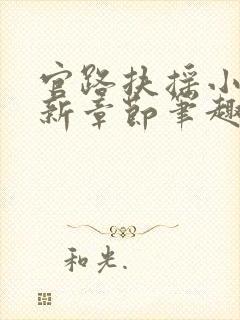 官路扶摇小
新章节笔趣
和光.